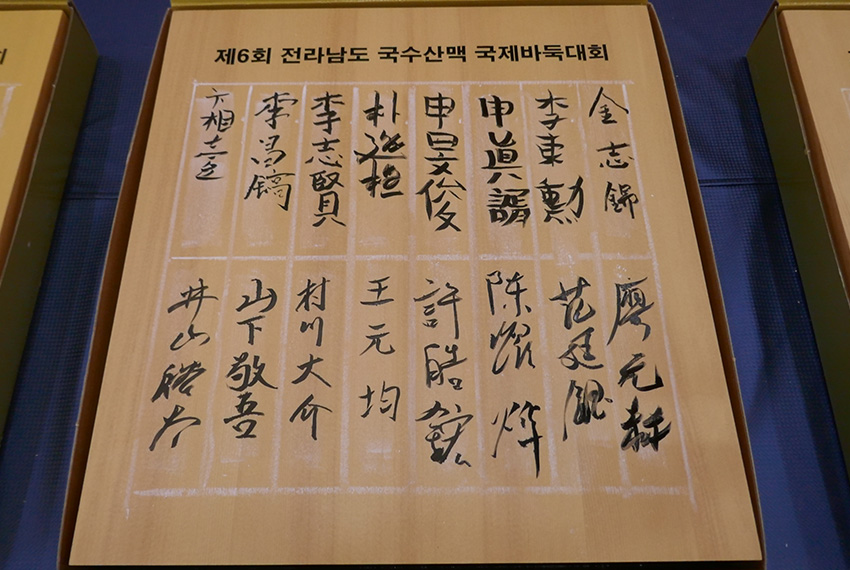 제6회 전라남도 국수산맥 국제바둑대회
金志錫
李東勳
申眞諝
申旻俊
朴廷桓
李志賢
李昌鎬
卞相壹
廖元赫
范廷鈺
陈耀烨
許皓鋐
王元均
村川大介
山下敬吾
井山裕太